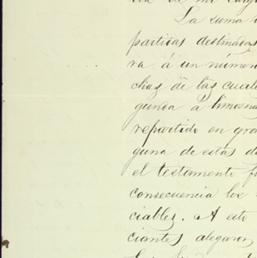 La suma
partidas destinadas
va á un numero
chas de las cuale
guna á limosna
repartido en gra
guna de estas d
el testamento f
consecuencia los
ciables. A este
ciantes alegaron